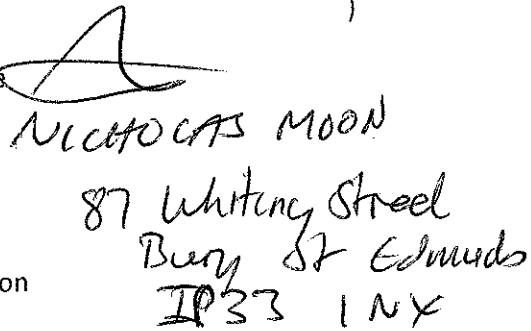 e
NICHOLAS MOON
87 Whiting Street
Bury St Edmunds
on
IP33 1NX